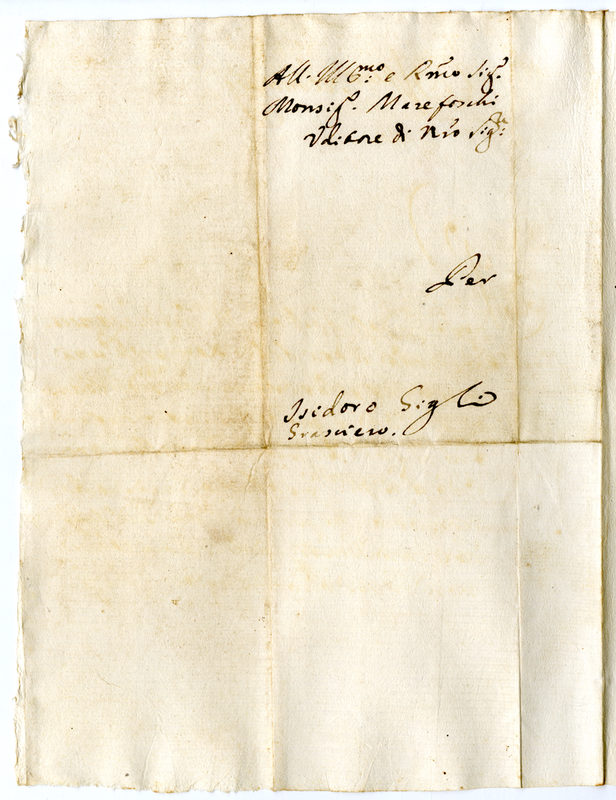 All. Ill:mo e R.mo Sig.r
Monsig.r Marefoschi
Uditore di N'ro Sig.re
Per
Isidoro Gigli
Grasciero.